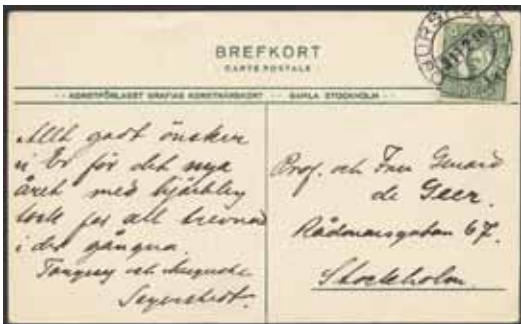 BREFKORT
CARTE POSTALE
KONSTFÖRLAGET GRAFIAS KONSTNÄRSKORT
GAMLA STOCKHOLM
DJURSHOLM
Allt godt önskar
vi Er för det nya
året med hjärtlig
tack för all trevnad
i det gångna.
och
Segerstedt.
Prof. och Fru Gerard
de Geer.
Rådmansgatan 67.
Stockholm.